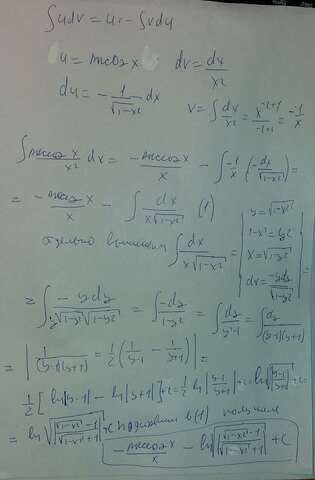 ∫udv = u·- ∫vdu
u = arccos x   dv = dx/x²
du = - 1/√(1-x²) dx   v = ∫ dx/x² = x^(-2+1)/(-2+1) = -1/x
∫ arccos x/x² dx = - arccos x/x - ∫ -1/x (- dx/√(1-x²)) =
= - arccos x/x - ∫ dx/(x√(1-x²)) (1)
отдельно вычислим ∫ dx/(x√(1-x²)) = | y = √(1-x²) 1-x² = y² x = √(1-y²) dx = -ydy/√(1-y²) | =
= ∫ -ydy/(y√(1-y²)√(1-y²)) = ∫ -dy/(1-y²) = ∫ dy/(y²-1) = ∫ dy/((y-1)(y+1))
= | 1/((y-1)(y+1)) = 1/2 (1/(y-1) - 1/(y+1)) | =
1/2 [ln|y-1| - ln|y+1|] + c = 1/2 ln|(y-1)/(y+1)| + c = ln√|(y-1)/(y+1)| + c =
= ln√|(√(1-x²)-1)/(√(1-x²)+1)| + c подставим в (1) получим
- arccos x/x - ln√|(√(1-x²)-1)/(√(1-x²)+1)| + C